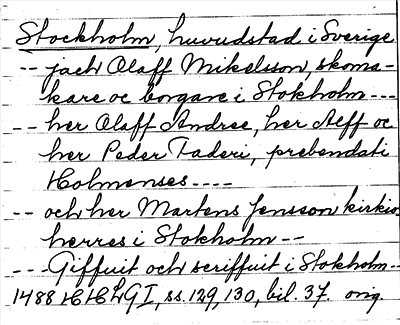 Stockholm, huvudstad i Sverige
-- jach Olaff Mikelsson, skoma-
kare oc borgare i Stokholm ---
-- her Olaff Andree, her Alff oc
her Peder Taderi, prebendati
Holmenses ----
-- och her Martens Jensson kirkio
herres i Stokholm --
--- Giffuit och scriffuit i Stokholm --
1488 HHLG I, ss. 129, 130, bil. 37. orig.